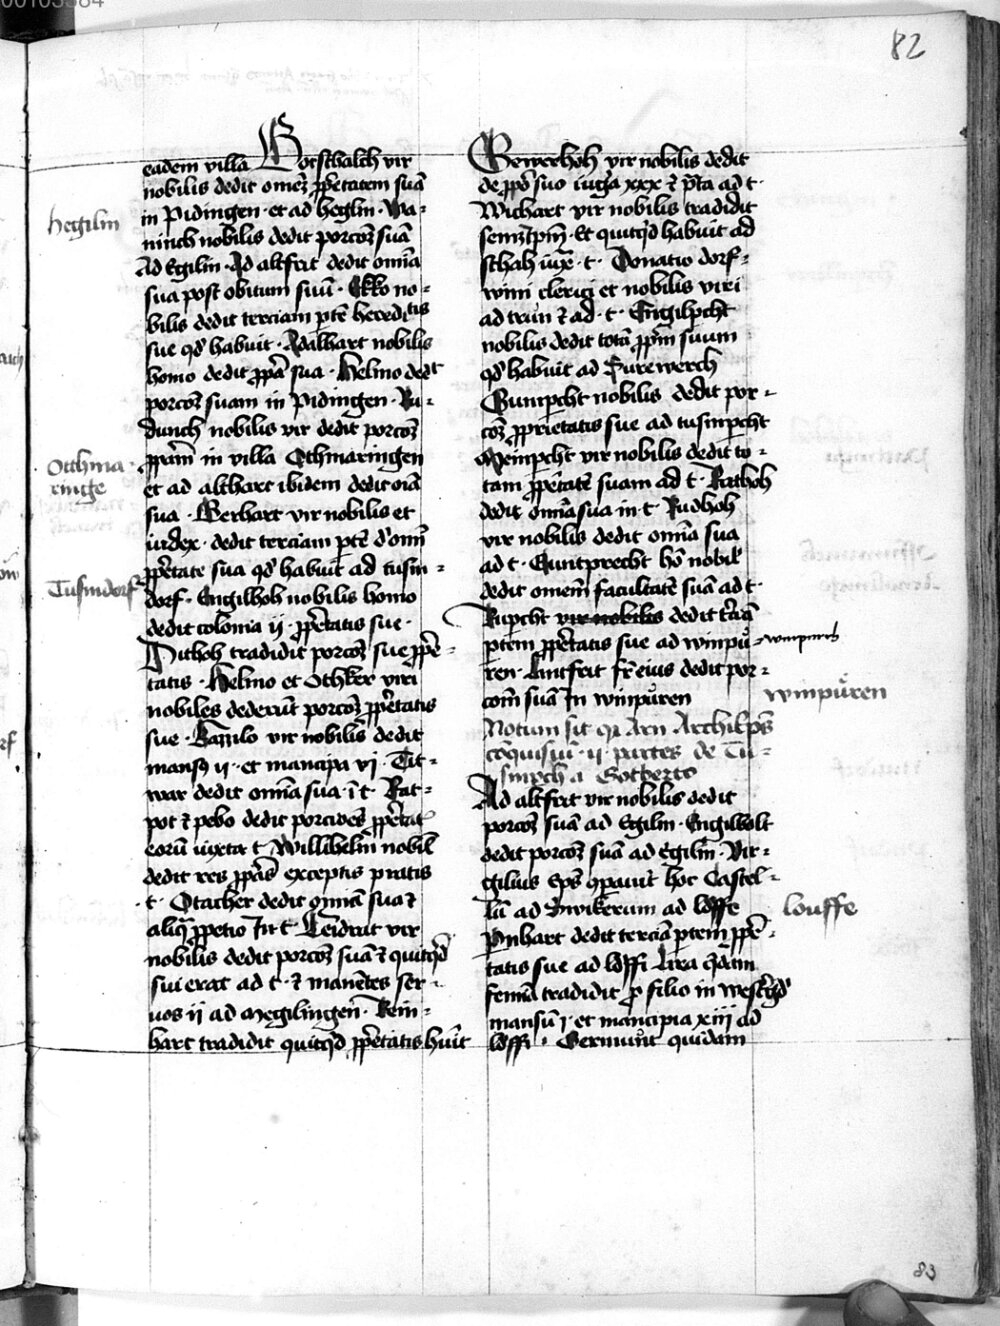 82
eadem villa Gotschalch vir
nobilis dedit omeʒ ꝓp̄etatem suā
in Pidingen · et ad heglin · Wa-
ninch nobilis dedit porcoʒ suā
Ad Egilin · Ad altfrit dedit om̄ia
sua post obitum suū · Ekko no-
bilis dedit terciam ꝑtē hereditis
sue qd̓ habuit · Adalhart nobilis
homo dedit ꝓpā sua · Helmo dedt
porcoʒ suam in Pidingen · Ru-
dunch nobilis vir dedit porcoʒ
ꝓpam̄ in villa Othmaringen
et ad althart ibidem dedit oīa
sua · Gerhart vir nobilis et
iudex · dedit terciam ꝑtē d̓ om̄i
ꝓp̄etate sua qd̓ habuit ad tusin-
dorf · Engilhoh nobilis homo
dedit colonia ij · ꝓp̄etatis sue ·
Dithoh tradidit porcoʒ sue ꝓp̄e-
tatis · Helmo et Othker viri
nobiles dederūt porcoʒ ꝓp̄etatis
sue · Cazzilo vir nobilis dedit
mansꝰ ij · et mancipa vj · Tit-
war dedit om̄ia sua · ī t · Rat-
pot ⁊ pebo dedit porcōes ꝓp̄etat
eorū iuxta t · Willihelm̄ nobil̄
dedit res ꝓpas̄ exceptis pratis
· t · Otacher dedit om̄ia sua ⁊
aliq̄ ꝓpetio In t · Leidrat vir
nobilis dedit porcoʒ suā ⁊ quitqd̓
sui erat ad t · ⁊ manētes ser-
uos ij ad Megilingen · Rein-
hart tradidit quitqd̓ ꝓp̄etatis hūit
Hegilin
Otthma-
ringe
Tusindorf
Gewerhoh vir nobilis dedit
de ꝓpō suo iuḡa xxx ⁊ p̄ta ad t ·
Wichart vir nobilis tradidit
semet̄ip̄m̄ · Et quitqd̓ habuit ad
· t · Donatio dorf-
wini clerici et nobilis viri
ad trun ⁊ ad · t · Engilpcht
nobilis dedit totā ꝓpm̄ suum
qd̓ habuit ad Furewerch
Gunipcht nobilis dedit por-
coʒ ꝓprietatis sue ad tusinpcht
Meinpcht vir nobilis dedit to-
tam ꝓp̄etatē suam ad t · Rathoh
dedit om̄ia sua in t · Rudhoh
vir nobilis dedit om̄ia sua
ad t · Guntprecht hō nobil̄
dedit omem̄ facultatē suā ad t ·
Rupcht vir nobilis dedit t̄ciā
ptem ꝓp̄etatis sue ad winpů-
ren · Lintfrit fr̄ eius dedit por-
com̄ suā In winpůren
Notum sit qꝛ Arn Archiep̄s
cōquisiuī · ij · partes de Tu-
sinpch a Gotberto
Ad altfrit vir nobilis dedit
porcoʒ suā ad Egilin · Engilbolt
dedit porcoʒ suā ad egilin · Vir-
gilius ep̄s ꝯparauit hoc Castel-
lū ad Zwikerum ad loffe
Pnhart dedit terciā ptem ꝓp̄e-
tatis sue ad loffi Lira qd̄am
femīa tradidit ꝓ filio in
mansū j · et mancipia xiij ad
loffi · Germunt quidam
winpürch
winpůren
louffe
83